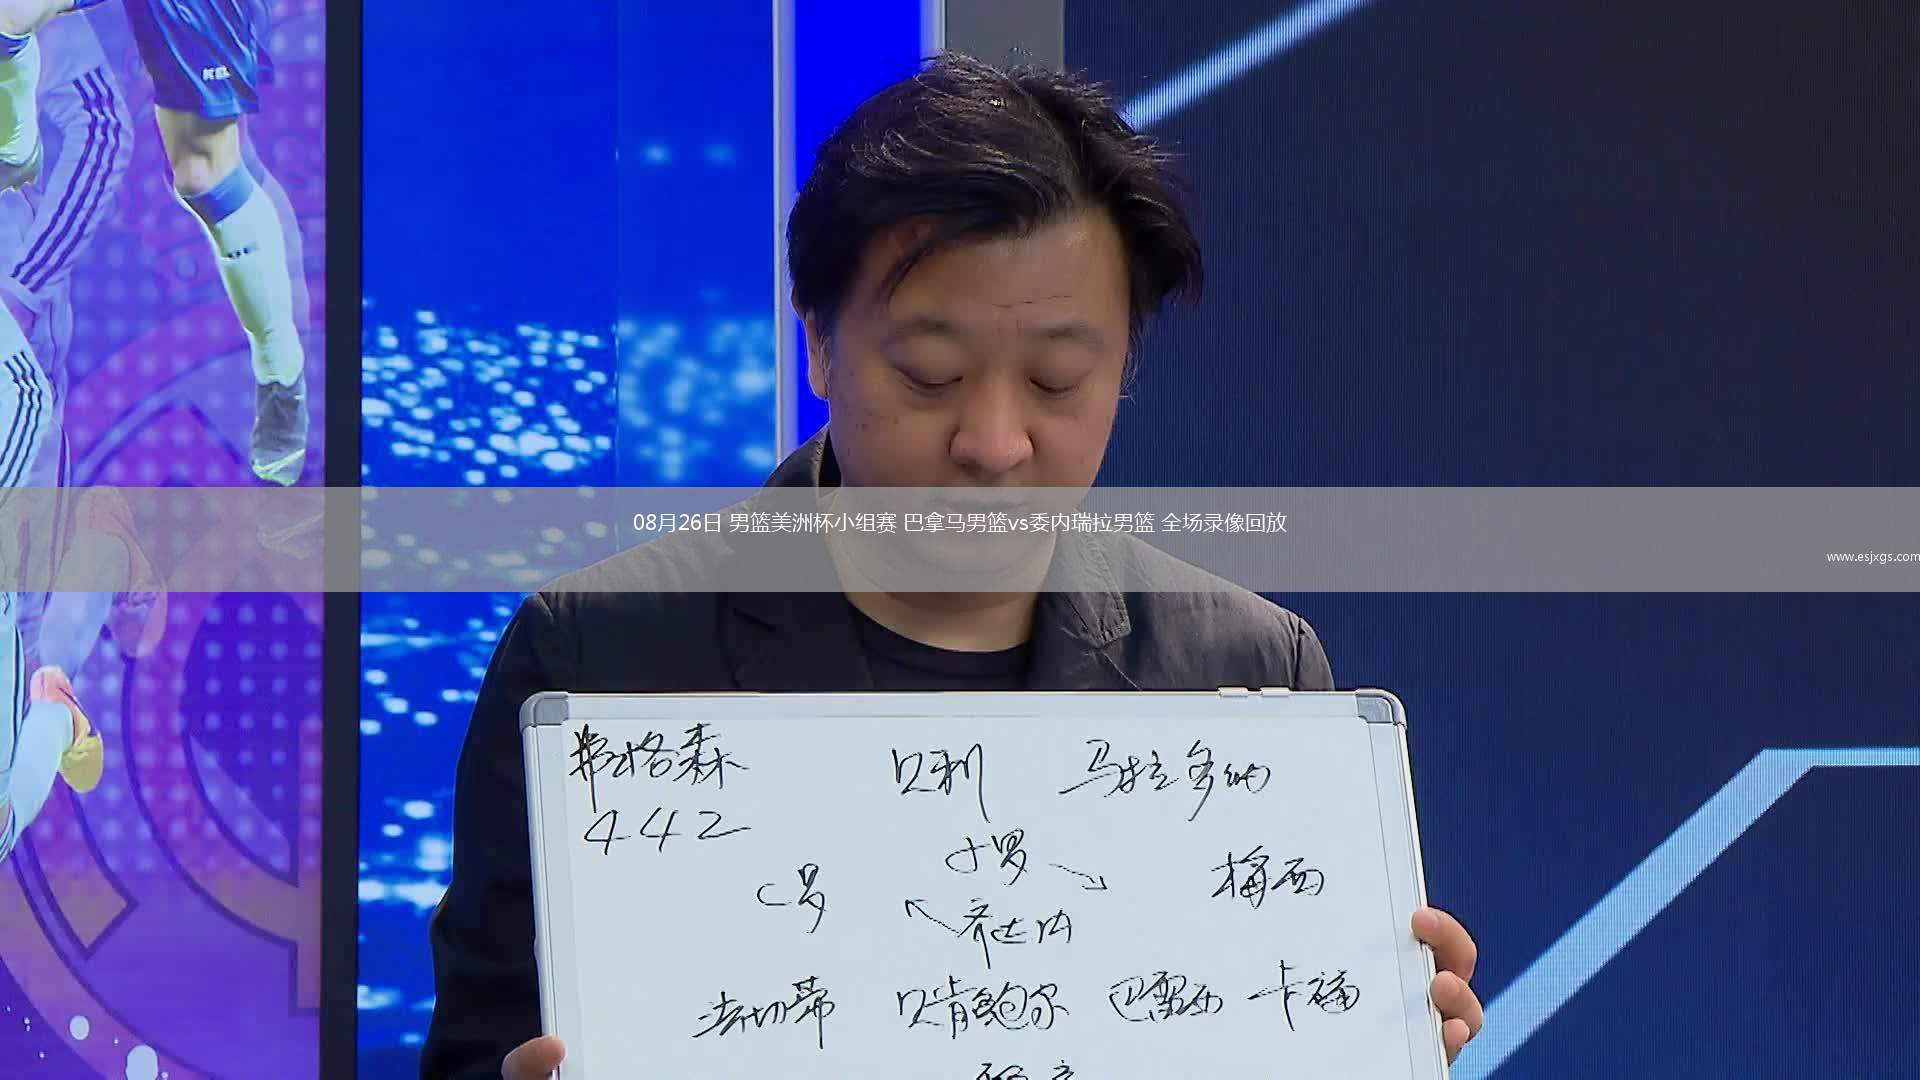 08月26日 男篮美洲杯小组赛 巴拿马男篮vs委内瑞拉男篮 全场录像回放
www.esjxgs.com
弗格森 贝利 马拉多纳
442
小罗
C罗 梅西
齐达内
法切蒂 贝肯鲍尔 巴雷西 卡福